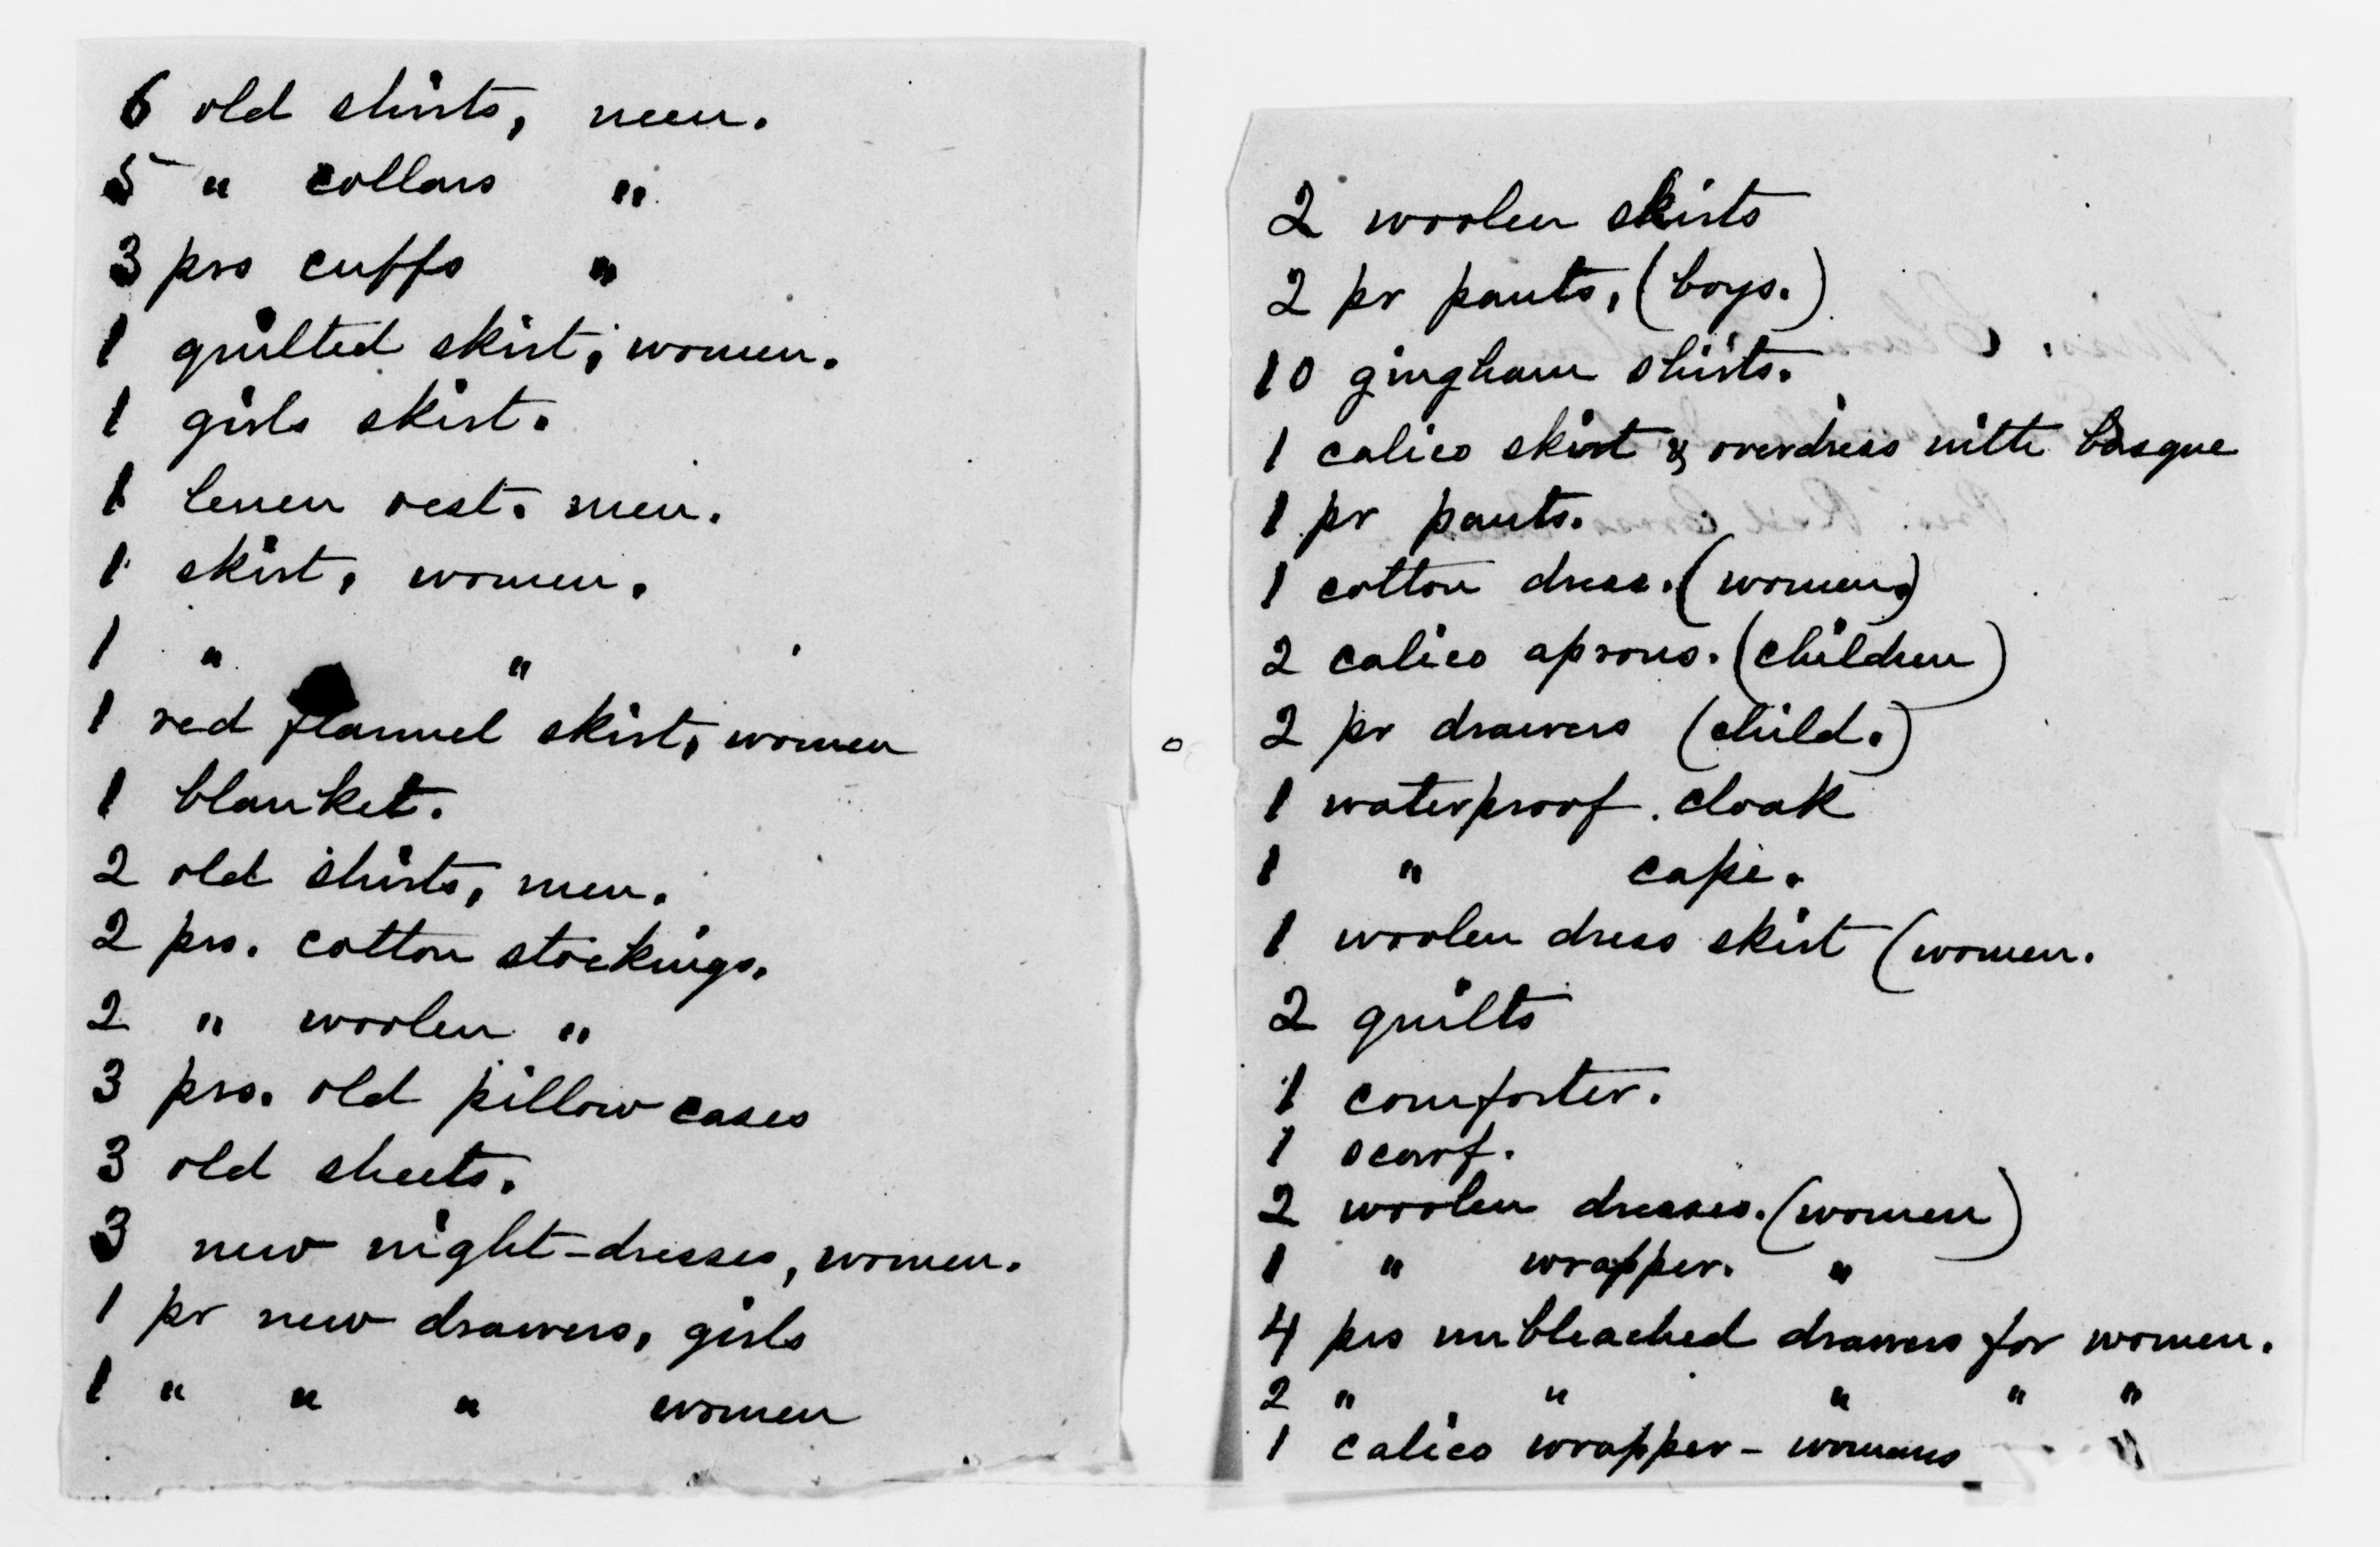 6 old shirts, men.
5 " collars "
3 prs cuffs "
1 quilted skirt, women.
1 girls skirt.
1 lenen vest. men.
1 skirt, women.
1 " "
1 red flannel skirt, women
1 blanket.
2 old shirts, men.
2 prs. cotton stockings.
2 " woolen "
3 prs. old pillow cases
3 old sheets.
3 new night-dresses, women.
1 pr new drawers, girls
1 " " " women
2 woolen skirts
2 pr pants, (boys.)
10 gingham shirts.
1 calico skirt & overdress with basque
1 pr pants.
1 cotton dress. (women)
2 calico aprons. (children)
2 pr drawers (child.)
1 waterproof. cloak
1 " cape.
1 woolen dress skirt (women.
2 quilts
1 comforter.
1 scarf.
2 woolen dresses. (women)
1 " wrapper. "
4 prs unbleached drawers for women.
2 " " " " "
1 calico wrapper - womans